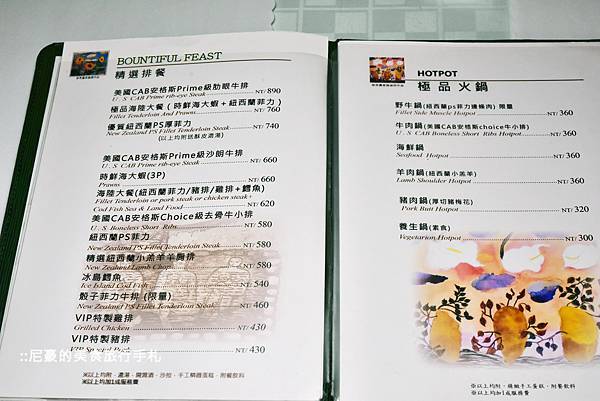 BOUNTIFUL FEAST
精選排餐
美國CAB安格斯Prime級肋眼牛排
U. S CAB Prime rib-eye Steak NT/ 890
極品海陸大餐(時鮮海大蝦+紐西蘭菲力)
Fillet Tenderloin And Prawns NT/ 760
優質紐西蘭PS厚菲力
New Zealand PS Fillet Tenderloin Steak NT/ 740
(以上均附送酥皮濃湯)
美國CAB安格斯Prime級沙朗牛排
U. S CAB Prime rib-eye Steak NT/ 660
時鮮海大蝦(3P)
Prawns NT/ 660
海陸大餐(紐西蘭菲力/豬排/雞排+鱈魚)
Fillet Tenderloin or pork steak or chicken steak+
Cod Fish Sea & Land Food NT/ 620
美國CAB安格斯Choice級去骨牛小排
U. S Boneless Short Ribs NT/ 580
紐西蘭PS菲力
New Zealand PS Fillet Tenderloin Steak NT/ 580
精選紐西蘭小羔羊羊肩排
New Zealand Lamb Chops NT/ 580
冰島鱈魚
Ice Island Cod Fish NT/ 540
骰子菲力牛排 (限量)
New Zealand PS Fillet Tenderloin Steak NT/ 460
VIP特製雞排
Grilled Chicken NT/ 430
VIP特製豬排
VIP Special Pork NT/ 430
※以上均附.濃湯.開胃酒.沙拉.手工精緻蛋糕.附餐飲料
※以上均加1成服務費
HOTPOT
極品火鍋
野牛鍋(紐西蘭ps菲力邊條肉) 限量
Fillet Side Muscle Hotpot NT/ 360
牛肉鍋(美國CAB安格斯choice牛小排)
U. S CAB Boneless Short Ribs Hotpot NT/ 360
海鮮鍋
Seafood Hotpot NT/ 360
羊肉鍋(紐西蘭小羔羊)
Lamb Shoulder Hotpot NT/ 360
豬肉鍋(厚切豬梅花)
Pork Butt Hotpot NT/ 320
養生鍋(素食)
Vegetarian Hotpot NT/ 300
※以上均附.精緻手工蛋糕.附餐飲料
※以上均加1成服務費
::尼豪的美食旅行手札